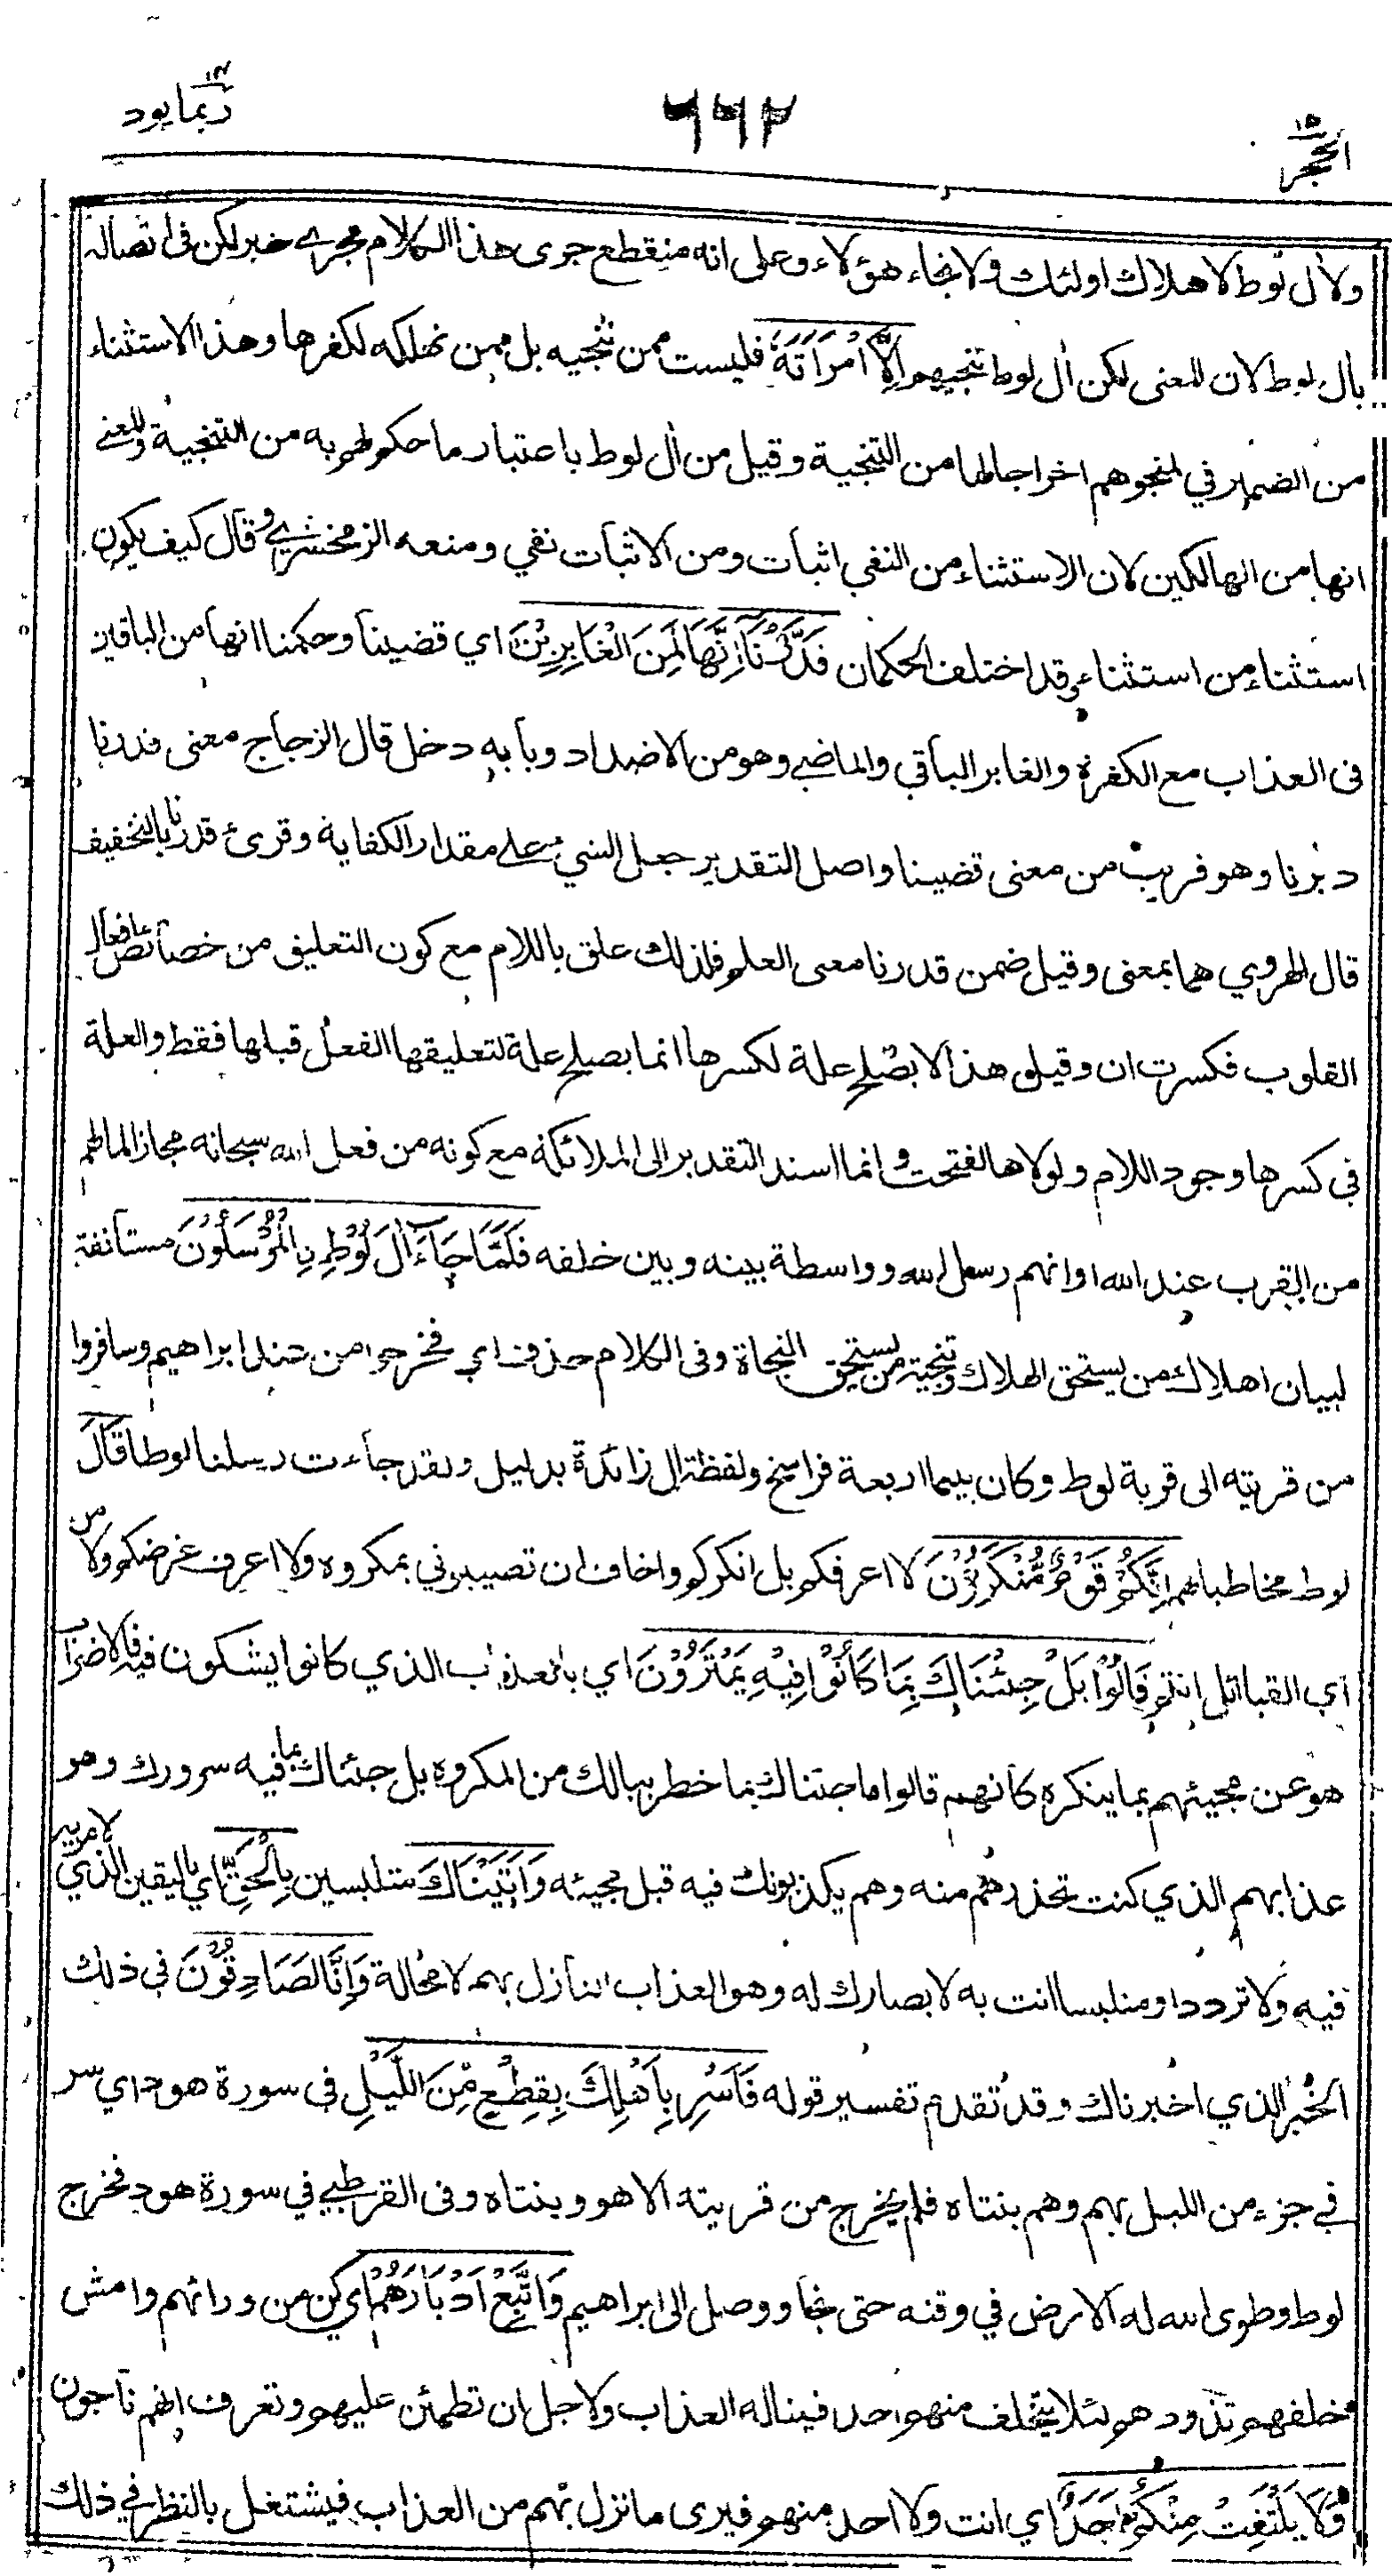 الحجر ١٥
٦٦٢
ربما يود ١٤
ولأل لوط لاهلاك اولئك ولانجاء هؤلاء وعلى انه منقطع جرى هذا الكلام مجرى خبر لكن فى اتصاله
بأل لوط لان المعنى لكن أل لوط ننجيهم اِلَّا امْرَاَتَهٗ فليست ممن ننجيه بل ممن نهلكه لكفرها وهذا الاستثناء
من الضمير في لمنجوهم اخراجا لها من التنجية وقيل من أل لوط باعتبار ما حكم لهم به من التنجية والمعنى
انها من الهالكين لان الاستثناء من النفي اثبات ومن الاثبات نفي ومنعه الزمخشري وقال كيف يكون
استثناء من استثناء وقد اختلف الحكمان قَدَّرْنَآ اِنَّهَا لَمِنَ الْغَابِرِيْنَ اي قضينا وحكمنا انها من الباقين
فى العذاب مع الكفرة والغابر الباقي والماضي وهو من الاضداد وبابه دخل قال الزجاج معنى قدرنا
دبرنا وهو قريب من معنى قضينا واصل التقدير جعل الشيء على مقدار الكفاية وقرئ قدرنا بالتخفيف
قال الهروي هما بمعنى وقيل ضمن قدرنا معنى العلم فلذلك علق باللام مع كون التعليق من خصائص افعال
القلوب فكسرت ان وقيل هذا لا يصلح علة لكسرها انما يصلح علة لتعليقها الفعل قبلها فقط والعلة
فى كسرها وجود اللام ولولاها لفتحت وانما اسند التقدير الى الملائكة مع كونه من فعل الله سبحانه مجازا لما لهم
من القرب عند الله او انهم رسل الله وواسطة بينه وبين خلفه فَلَمَّا جَآءَ اٰلَ لُوْطِ ۨالْمُرْسَلُوْنَ مستأنفة
لبيان اهلاك من يستحق الهلاك وتنجية من يستحق النجاة وفى الكلام حذف اي فخرجوا من عند ابراهيم وسافروا
من قريته الى قرية لوط وكان بينهما اربعة فراسخ ولفظة أل زائدة بدليل ولقد جاءت رسلنا لوطا قَالَ
لوط مخاطبا لهم اِنَّكُمْ قَوْمٌ مُّنْكَرُوْنَ لا اعرفكم بل انكركم واخاف ان تصيبوني بمكروه ولا اعرف غرضكم ولا من
اي القبائل انتم قَالُوْا بَلْ جِئْنَاكَ بِمَا كَانُوْا فِيْهِ يَمْتَرُوْنَ اي بالعذاب الذي كانوا يشكون فيه فالاضراب
هو عن مجيئهم بما ينكره كأنهم قالوا ما جئناك بما خطر ببالك من المكروه بل جئناك بما فيه سرورك وهو
عذابهم الذي كنت تحذرهم منه وهم يكذبونك فيه قبل مجيئه وَاَتَيْنَاكَ متلبسين بِالْحَقِّ اي باليقين الذي لا مرية
فيه ولا تردد او متلبسا انت به لابصارك له وهو العذاب النازل بهم لا محالة وَاِنَّا لَصَادِقُوْنَ فى ذلك
الخبر الذي اخبرناك وقد تقدم تفسير قوله فَاَسْرِ بِاَهْلِكَ بِقِطْعٍ مِّنَ اللَّيْلِ فى سورة هود اي سر
في جزء من الليل بهم وهم بنتاه فلم يخرج من قريته الا هو وبنتاه وفى القرطبي في سورة هود فخرج
لوط وطوى الله له الارض في وقته حتى نجا ووصل الى ابراهيم وَاتَّبِعْ اَدْبَارَهُمْ اي كن من ورائهم وامش
خلفهم تذودهم لئلا يتخلف منهم احد فيناله العذاب ولاجل ان تطمئن عليهم وتعرف انهم ناجون
وَلَا يَلْتَفِتْ مِنْكُمْ اَحَدٌ اي انت ولا احد منهم فيرى ما نزل بهم من العذاب فيشتغل بالنظر في ذلك